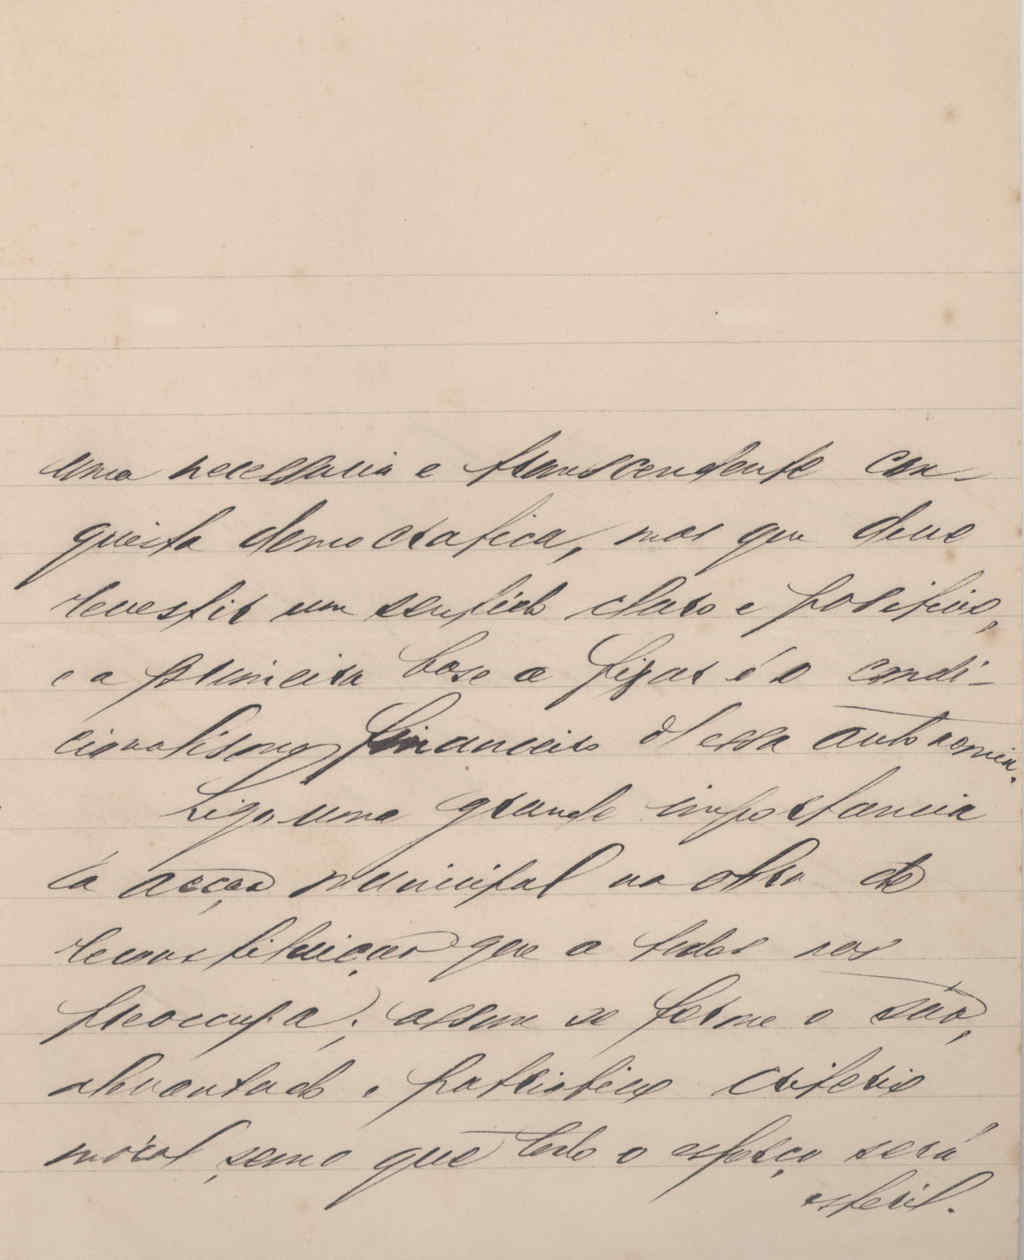 uma necessaria e transcendente con-
quista democratica, mas que deve
revestir um sentido claro e positivo,
e a primeira base a fixar é o condi-
cionalismo financeiro d'essa autonomia.
Ligo uma grande importancia
á acção municipal na obra de
reconstituição que a todos nos
preoccupa; assim se forme o são,
alevantado e patriotico criterio
moral, sem o que todo o esforço será
esteril.